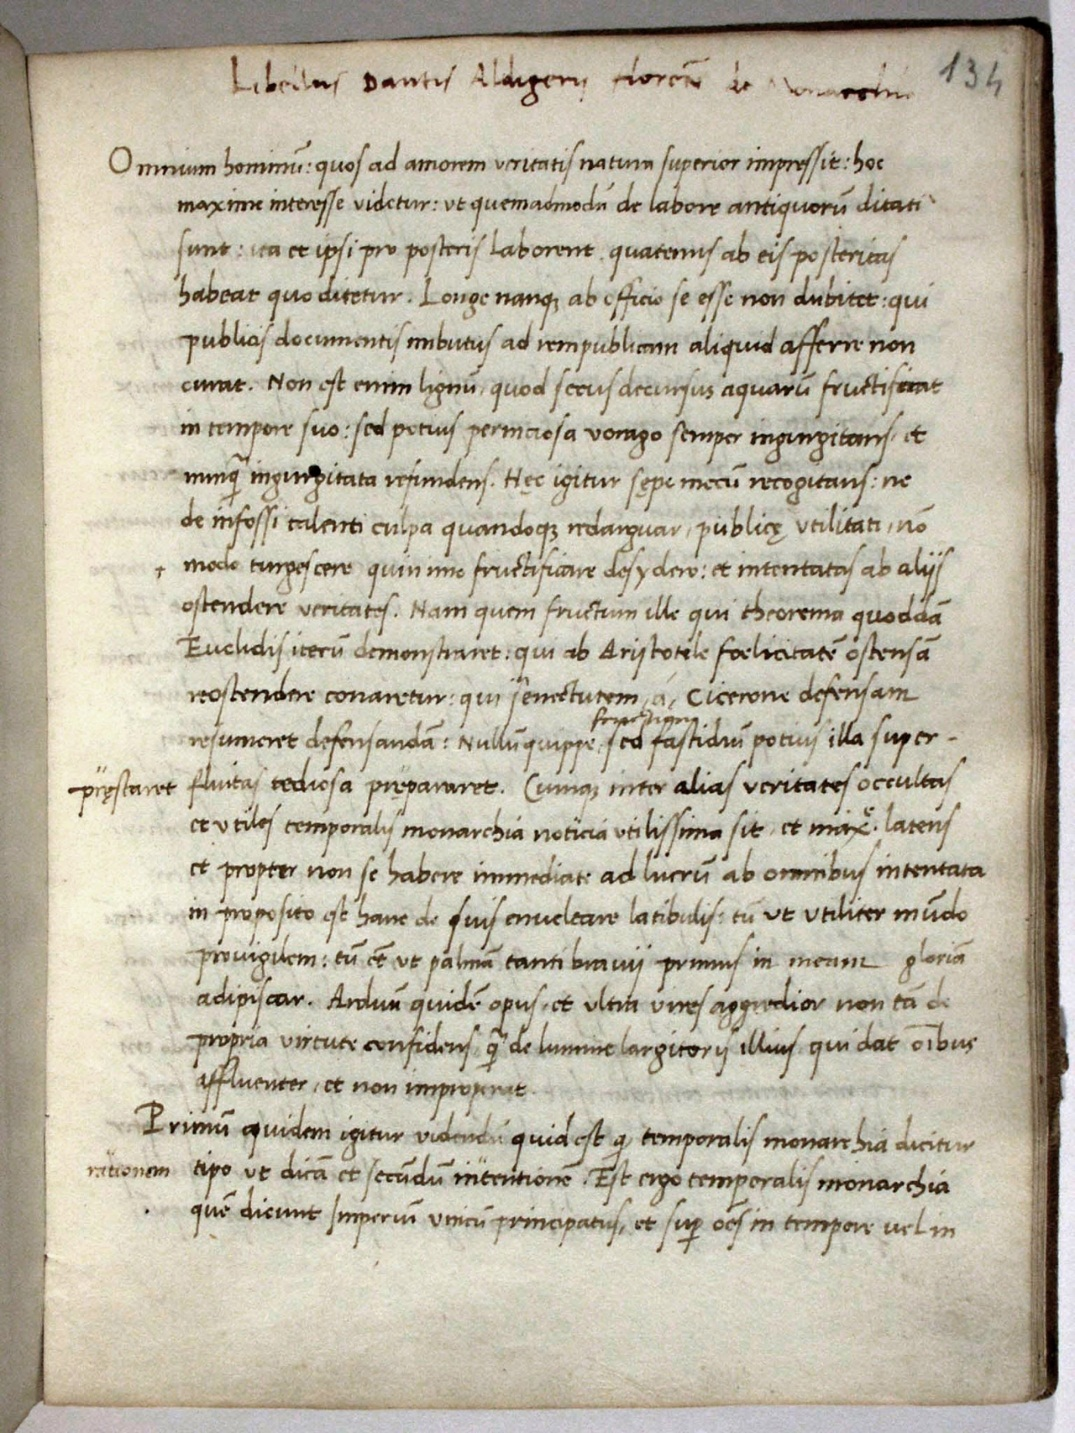 Libellus Dantis Aldigerii florētī de Monarchia
134
Omnium hominū: quos ad amorem veritatis natura superior impressit: hoc
maxime interesse videtur: ut quemadmodū de labore antiquorū ditati
sunt: ita et ipsi pro posteris laborent quatenus ab eis posteritas
habeat quo ditetur. Longe nanqꝫ ab officio se esse non dubitet: qui
publicis documentis imbutus ad rempublicam aliquid afferre non
curat. Non est enim lignū, quod secus decursus aquarū fructificat
in tempore suo: sed potius perniciosa vorago semper ingurgitans, et
nunq̃ ingurgitata refundens. Hęc igitur sępe mecū recogitans: ne
de infossi talenti culpa quandoqꝫ redarguar, publicę utilitati, nō
modo turgescere quinimo fructificare desydero: et intentatas ab aliis
ostendere veritates. Nam quem fructum ille qui theorema quoddā
Euclidis iterū demonstraret: qui ab Aristotele foelicitatē ostensā
reostendere conaretur: qui senectutem, á, Cicerone defensam
resumeret defensandā: Nullū quippe, sed fastidiū potius illa super-
fructum
pręstaret fluitas tediosa prępararet. Cumqꝫ inter alias veritates occultas
et utiles temporalis monarchia noticia utilissima sit, et maxᵉ. latens
et propter non se habere immediate ad lucrū ab omnibus intentata
in proposito est hanc de suis enucleare latibulis: tū ut utiliter mūdo
provigilem: tū ēt ut palmā tanti bravii primus in meam gloriā
adipiscar. Arduū quidē opus, et ultra vires aggredior non tā de
propria virtute confidens, q̃ de lumine largitoris illius qui dat oībus
affluenter, et non improperat.
Primū quidem igitur videndū quid est q̨ temporalis monarchia dicitur
rationem tipo ut dicā et secūdū intentionē. Est ergo temporalis monarchia
quē dicunt Imperiū unicū principatus, et sup̱ oēs in tempore vel in